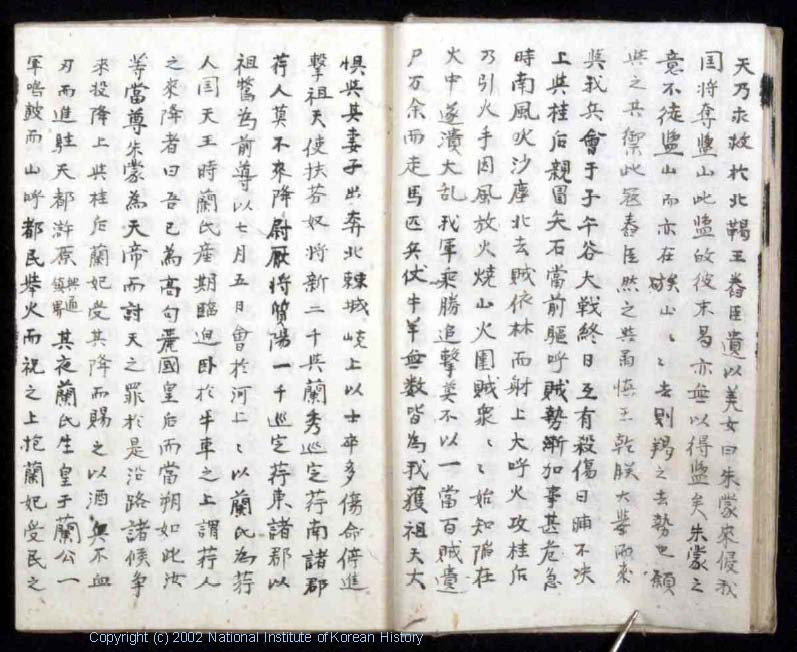 天乃求救於北鞨王春臣遺以美女曰朱蒙來侵我
国将奪盬山此盬故彼末曷亦無以得盬矣朱蒙之
意不徒盬山而亦在 山〻〻去則鞨之去勢也願
與之共禦此冦春臣然之與 慎王乾朕大挙而来
與我兵會于子午谷大戦終日互有殺傷日晡不决
上與桂后親冒矢石當前驅呼賊勢漸加事甚危急
時南風吹沙塵北去賊依林而射上大呼火攻桂后
乃引火手因風放火燒山火圍賊衆〻〻始知陷在
火中遂潰大乱我軍乘勝追擊莫不以一當百賊遺
尸万余而走馬匹兵仗牛羊無数皆為我獲祖天大
惧與其妻子出奔北棘城岐上以士卒多傷命停進
擊祖天使扶芬奴将新二千與蘭秀巡定荇南諸郡
荇人莫不来降尉厭将簡陽一千巡定荇東諸郡以
祖 為前導以七月五日會於河上〻以蘭氏為荇
人国天王時蘭氏産期臨迫卧於牛車之上謂荇人
之來降者曰吾已為高句麗國皇后而當朔如此汝
等當尊朱蒙為天帝而討天之罪於是沿路諸候争
來投降上與桂后蘭妃受其降而賜之以酒兵不血
刃而進駐天都滸原 興通鎮界 其夜蘭氏生皇子蘭公一
軍鳴鼓而山呼都民柴火而祝之上抱蘭妃受民之
Copyright (c) 2002 National Institute of Korean History